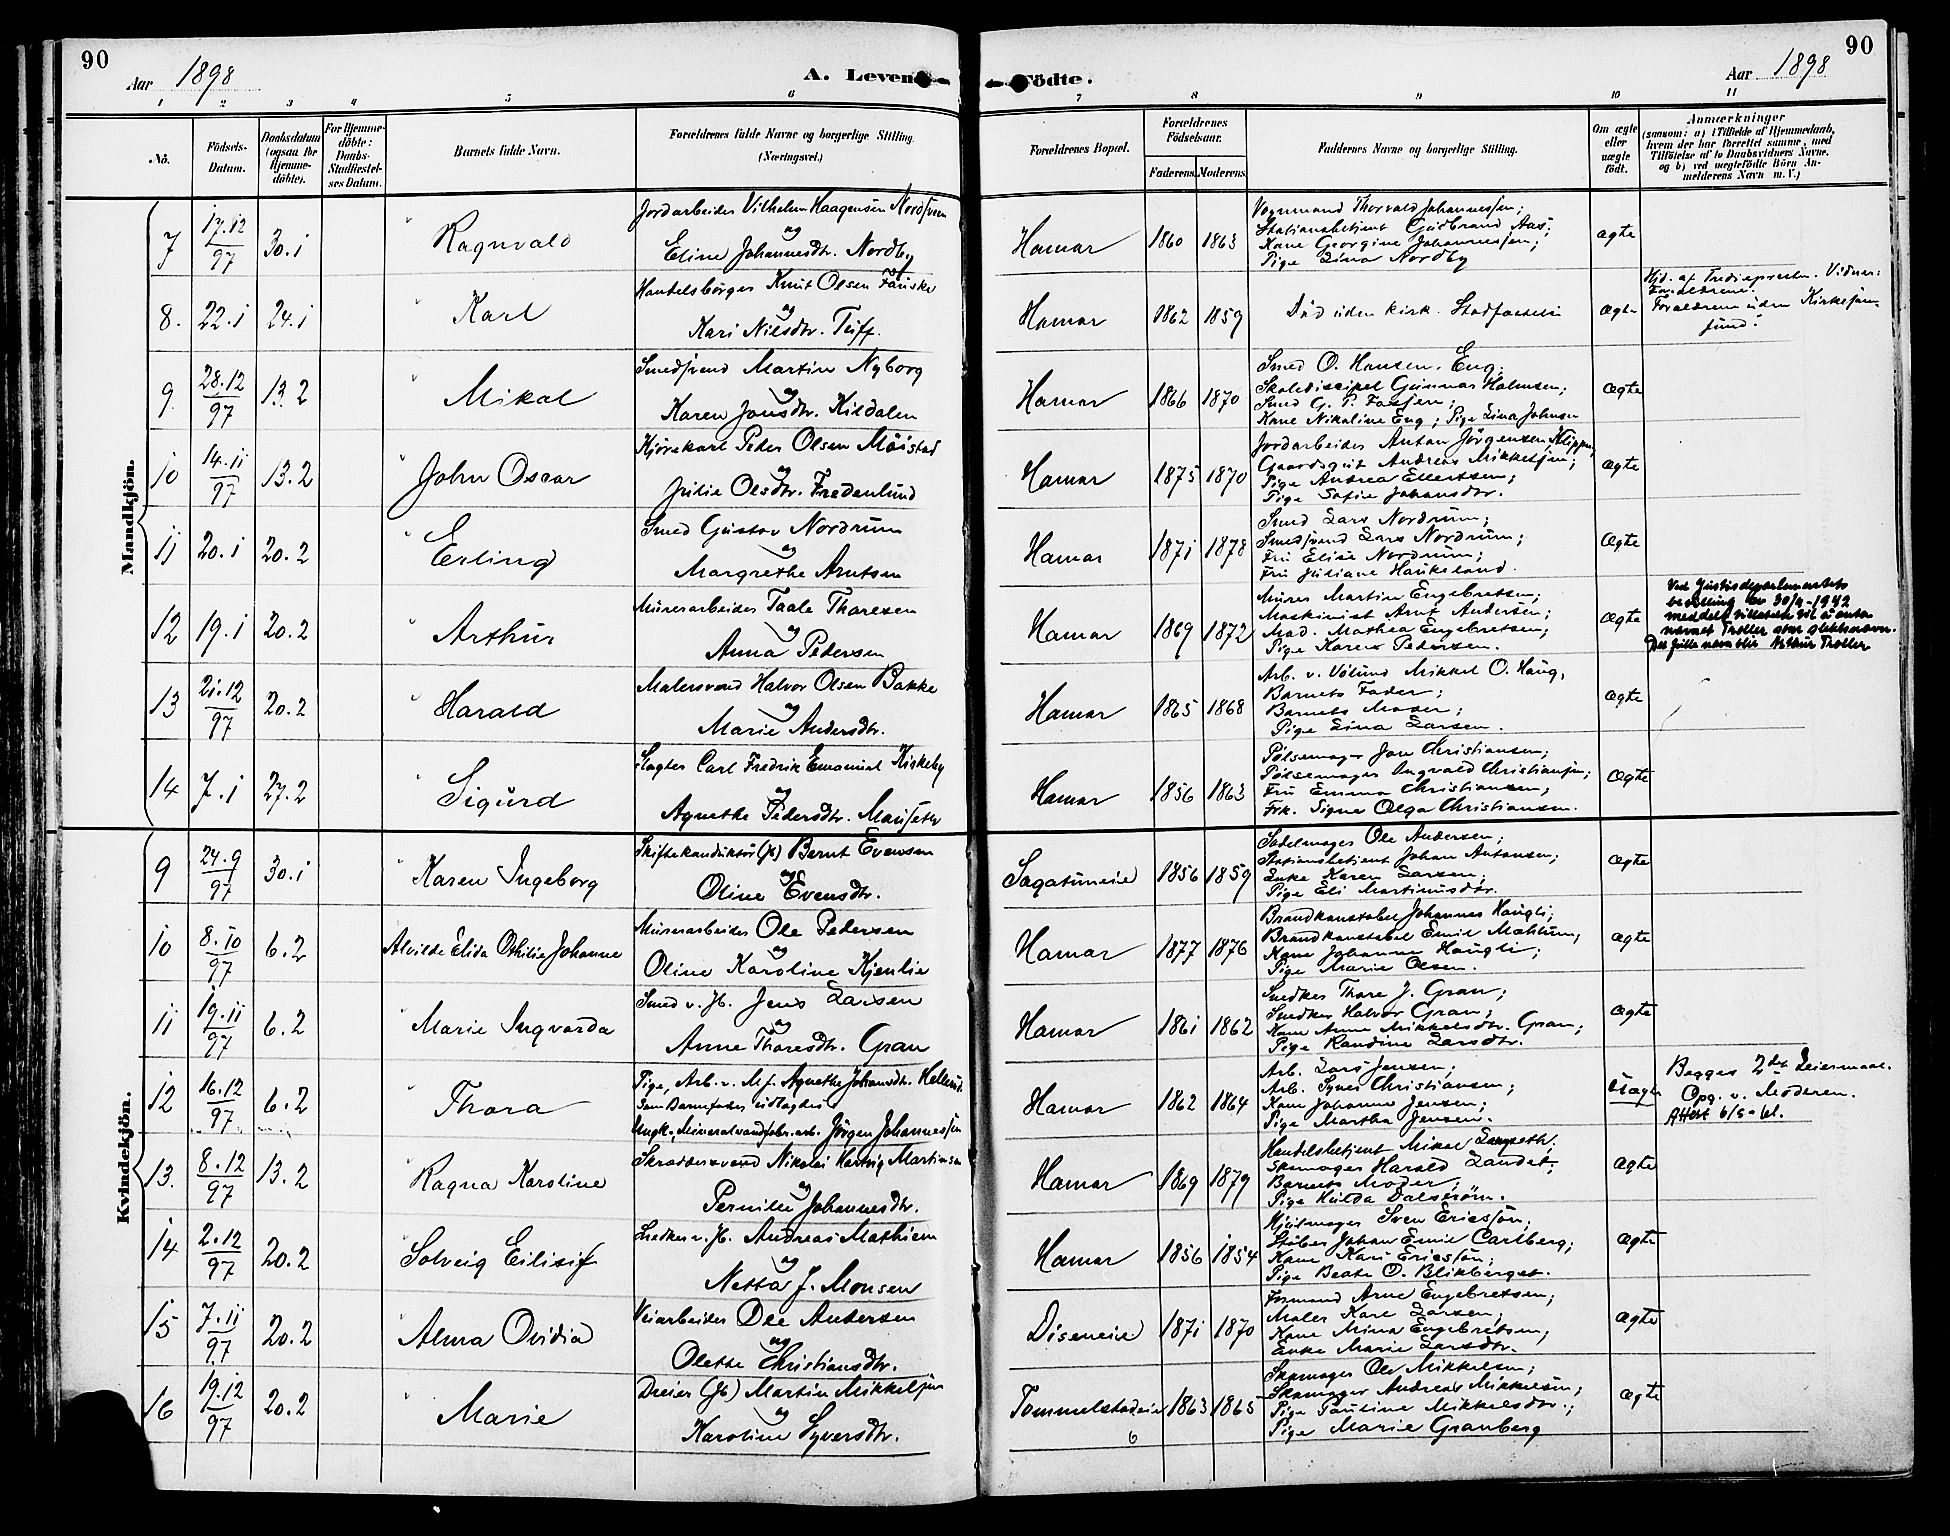 90
Aar 1898
A. Levende
Födte.
Aar 1898
90
1 2 3 4 5 6 7 8 9 10 11
No.
Födsels-Datum.
Daabsdatum (ogsaa for Hjemme-döbte).
For Hjemme-döbte: Daabs-Stadfæstel-ses Datum.
Barnets fulde Navn.
Forældrenes fulde Navne og borgerlige Stilling.
(Næringsvei.)
Forældrenes Bopæl.
Forældrenes Födselsaar.
Faderens. Moderens.
Faddernes Navne og borgerlige Stilling.
Om ægte eller uægte födt.
Anmærkninger
(saasom: a) i Tilfælde af Hjemmedaab,
hvem der har forrettet samme, med
Tilföielse af to Daabsvidners Navne,
og b) ved uægtefödte Börn An-
melderens Navn m. V.)
Mandkjön.
7 17.12/97 30.1 Ragnvald
Jordarbeider Vilhelm Haagensen Nordsveen
og
Eline Johannesdtr. Nordby
Hamar 1860 1863
Vognmand Thorvald Johannessen;
Stationsbetjent Gudbrand Aas;
Kone Georgine Johannessen;
Pige Lina Nordby
ægte
8. 22.1 24.1 Karl
Handelsborger Knut Olsen Fauske
og
Kari Nilsdtr. Tuff.
Hamar 1862 1859
Død uden kirk. Stadfæstelse
ægte
Hjd. af Fredicprester. Vidner:
Forældrene.
Forældrene uden Kirkesam-
fund.
9. 28.12/97 13.2 Mikal
Smedsvend Martin Nyborg
og
Karen Jonsdtr. Kildalen
Hamar 1866 1870
Smed O. Hansen. Eng;
Skoledisipel Gunnar Halmsen;
Smed G. P. Fossen;
Kone Nikoline Eng; Pige Lina Johnsen
ægte
10 14.11/97 13.2 John Oscar
Kjørekarl Peder Olsen Möistad
og
Julie Olsdtr. Fredenlund
Hamar 1875 1870
Jordarbeider Anton Jörgensen Klippen;
Gaardsgut Andreas Mikkelsen;
Pige Andrea Ellertsen;
Pige Sofie Johansdtr.
ægte
11 20.1 20.2 Erling
Smed Gustav Nordrum
og
Margrethe Arntsen
Hamar 1871 1878
Smed Lars Nordrum;
Smedsvend Lars Nordrum;
Fru Elise Nordrum;
Fru Juliane Haukeland.
ægte
12 19.1 20.2 Arthur
Murerarbeider Taale Thoresen
og
Anna Pedersen
Hamar 1869 1872
Murer Martin Engebretsen;
Maskinist Arnt Andersen;
Mad. Mathea Engebretsen;
Pige Karen Pedersen.
ægte
Ved Justisdepartementets
bevilling av 30/4-1942
meddelt tillatelse til å anta
navnet Troller som slektsnavn.
Det fulle navn blir Arthur Troller
13 21.12/97 20.2 Harald
Malersvend Halvor Olsen Bakke
og
Marie Andersdtr.
Hamar 1865 1868
Arb. v. Vølund Mikkel O. Haug,
Barnets Fader;
Barnets Moder;
Pige Lina Larsen.
ægte
14 7.1 27.2 Sigurd
Slagter Carl Fredrik Emanuel Kirkeby
og
Agnethe Pedersdtr. Mauseth
Hamar 1856 1863
Pølsemager Jon Christiansen;
Pølsemager Ingvald Christiansen;
Fru Emma Christiansen;
Frk. Signe Olga Christiansen.
ægte
Kvindekjön.
9 24.9/97 30.1 Karen Ingeborg
Skiftekonduktör (Jb) Bernt Evensen
og
Oline Evensdtr.
Sagatuneie 1856 1859
Sadelmager Ole Andersen;
Stationsbetjent Johan Antonsen;
Enke Karen Larsen;
Pige Eli Martinusdtr.
ægte
10 8.10/97 6.2 Alvilde Elida Othilie Johanne
Murerarbeider Ole Pedersen
og
Oline Karoline Kjenlie
Hamar 1877 1876
Brandkonstabel Johannes Haugli;
Brandkonstabel Emil Mæhlum;
Kone Johanne Haugli;
Pige Marie Olsen.
ægte
11 19.11/97 6.2 Marie Ingvarda
Smed v. Jb. Jens Larsen
og
Anne Thoresdtr. Gran
Hamar 1861 1862
Snedker Thore J. Gran;
Snedker Halvor Gran;
Kone Anne Mikkelsdtr. Gran;
Pige Randine Larsdtr.
ægte
12 16.12/97 6.2 Thora
Pige, Arb. v. M.f. Agnethe Johansdtr. Hellerud
Som Barnefader udlagdes
Ungk., Mineralvandfabr.arb. Jörgen Johannessen
Hamar 1862 1864
Arb. Lars Jensen;
Arb. Syver Christiansen;
Kone Johanne Jensen;
Pige Martha Jensen.
Uægte
Begges 2det Leiermaal.
Opg. v. Moderen.
Attest 6/5-61.
13. 8.12/97 13.2 Ragna Karoline
Skræddersvend Nikolai Hartvig Martinsen
og
Pernille Johannesdtr.
Hamar 1869 1879
Handelsbetjent Mikal Langseth;
Skomager Harald Landet;
Barnets Moder;
Pige Hulda Dalström.
ægte
14 2.12/97 20.2 Solveig Eilisif
Snedker v. Jb. Andreas Mathisen
og
Netta J. Monsen
Hamar 1856 1854
Hjulmager Sven Ericsson;
Støber Johan Emil Carlberg;
Kone Kari Ericsson;
Pige Beate O. Blikberget.
ægte
15 7.11/97 20.2 Alma Ovidia
Veiarbeider Ole Andersen
og
Olette Christiansdtr.
Diseneie 1871 1870
Formand Arne Engebretsen;
Maler Karl Larsen;
Kone Mina Engebretsen;
Enke Marie Larsdtr.
ægte
16 19.12/97 20.2 Marie
Dreier (Jb) Martin Mikkelsen
og
Karoline Syversdtr.
Tommelstadeie 1863 1865
Skomager Ole Mikkelsen;
Skomager Andreas Mikkelsen;
Pige Pauline Mikkelsdtr.;
Pige Marie Granberg
ægte
6